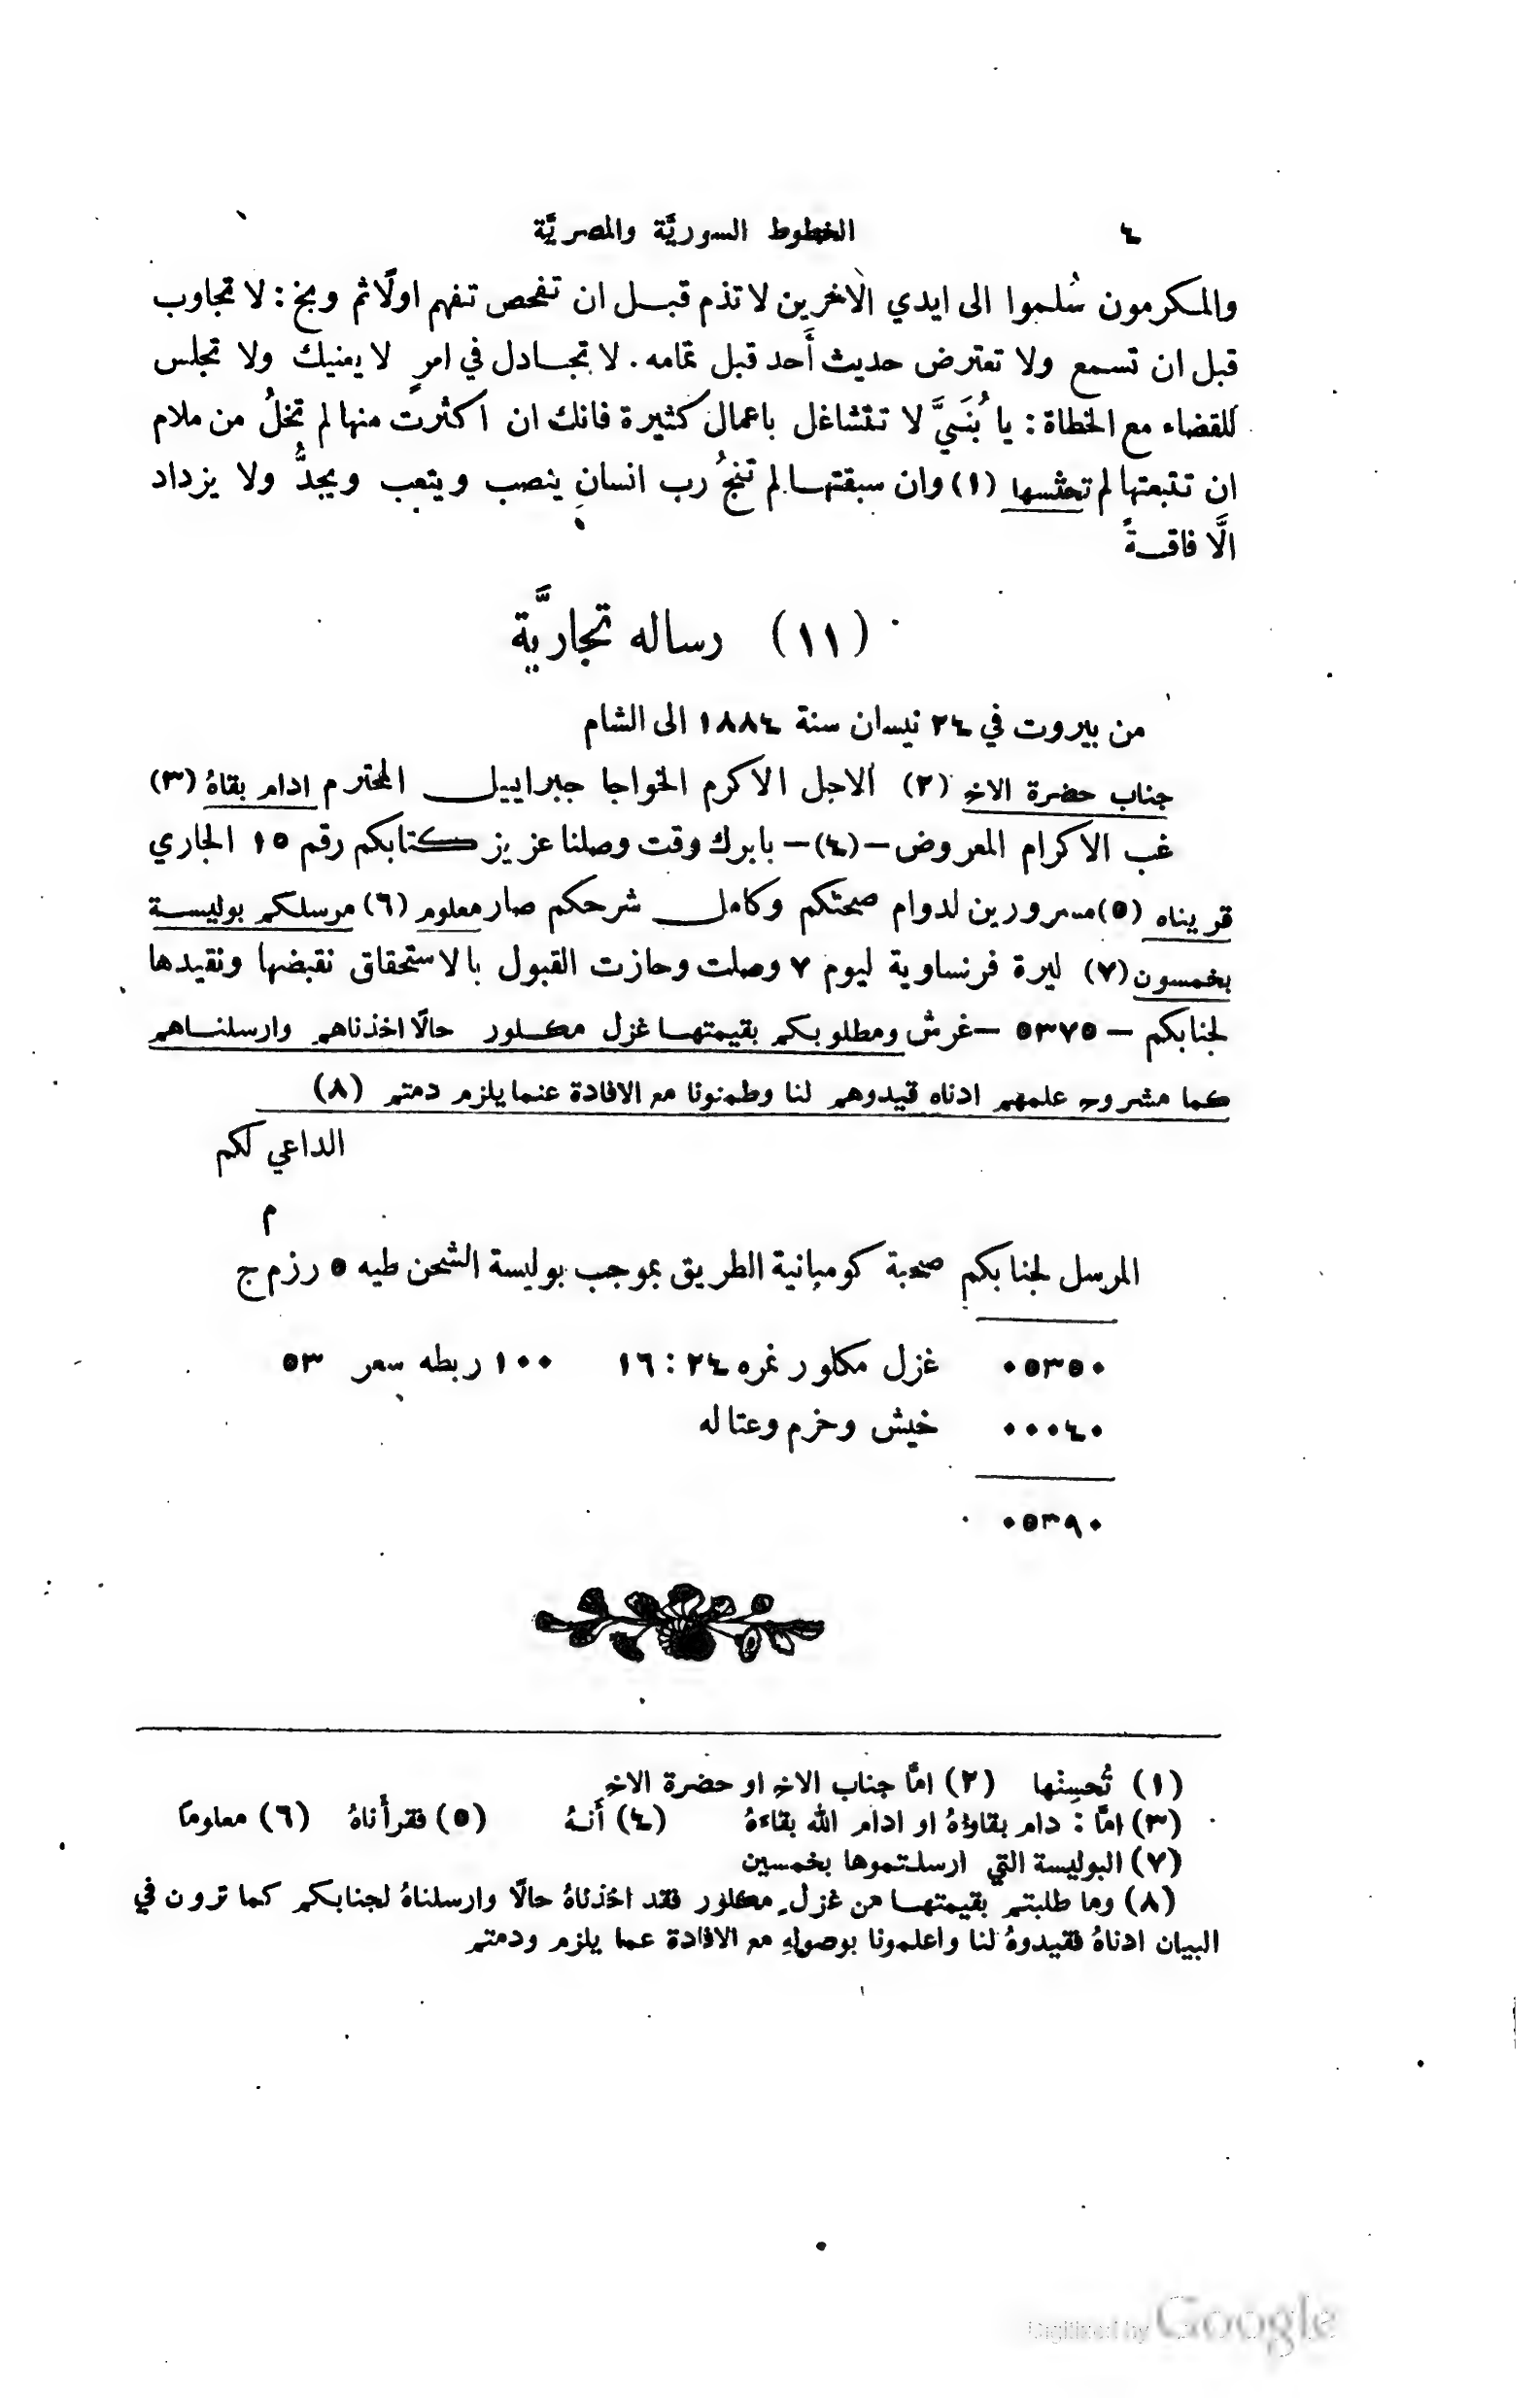 ٤ الخطوط السوريَّة والمصريَّة
والمكرمون سُلموا الى ايدي الاخرين لا تذم قبل ان تفحص تفهم اولًا ثم وبخ : لا تجاوب
قبل ان تسمع ولا تعترض حديث أَحد قبل تمامه . لا تجادل في امرٍ لا يعنيك ولا تجلس
للقضاء مع الخطاة : يا بُنَيَّ لا تتشاغل باعمال كثيرة فانك ان اكثرت منها لم تخلُ من ملام
ان تتبعتها لم تحثسها (١) وان سبقتها لم تنجُ رب انسانٍ ينصب ويتعب ويجدُّ ولا يزداد
الَّا فاقةً
(١١) رساله تجاريَّة
من بيروت في ٢٤ نيسان سنة ١٨٨٤ الى الشام
جناب حضرة الاخ (٢) الاجل الاكرم الخواجا جبراييل المحترم ادام بقاهُ (٣)
غب الاكرام المعروض – (٤) – بابرك وقت وصلنا عزيز كتابكم رقم ١٥ الجاري
قريناه (٥) مسرورين لدوام صحتكم وكامل شرحكم صار معلوم (٦) مرسلكم بوليسة
بخمسون (٧) ليرة فرنساوية ليوم ٧ وصلت وحازت القبول بالاستحقاق نقبضها ونقيدها
لجنابكم – ٥٣٧٥ – غرش ومطلوبكم بقيمتها غزل مكلور حالًا اخذناهم وارسلناهم
كما مشروح علمهم ادناه قيدوهم لنا وطمنونا مع الافادة عنما يلزم دمتم (٨)
الداعي لكم
م
المرسل لجنابكم صحبة كومبانية الطريق بموجب بوليسة الشحن طيه ٥ رزم ج
٠٥٣٥٠ غزل مكلور نمره ٢٤ : ١٦ ١٠٠ ربطه سعر ٥٣
٠٠٠٤٠ خيش وحزم وعتاله
٠٥٣٩٠
(١) تُحسِنْها (٢) امَّا جناب الاخ او حضرة الاخ
(٣) امَّا : دام بقاؤهُ او ادام الله بقاءَهُ (٤) أَنهُ (٥) فقرأْناهُ (٦) معلومًا
(٧) البوليسة التي ارسلتموها بخمسين
(٨) وما طلبتم بقيمتها من غزلٍ مكلور فقد اخذناهُ حالًا وارسلناهُ لجنابكم كما ترون في
البيان ادناهُ فقيدوهُ لنا واعلمونا بوصولهِ مع الافادة عما يلزم ودمتم
Digitized by Google